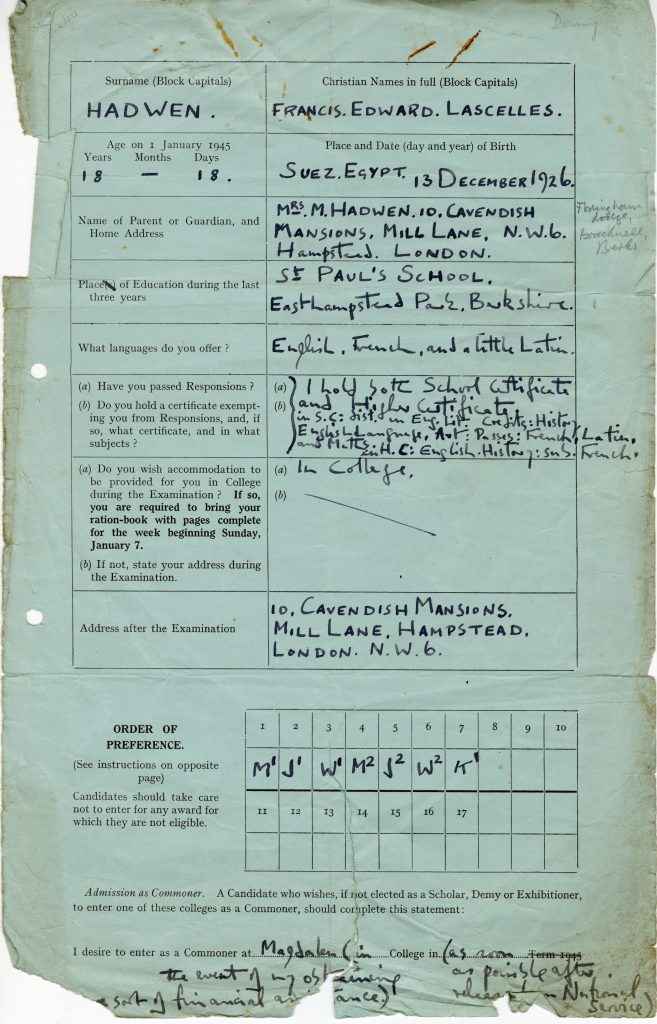 Demy
Surname (Block Capitals)
HADWEN.
Christian Names in full (Block Capitals)
FRANCIS. EDWARD. LASCELLES.
Age on 1 January 1945
Years Months Days
18 — 18.
Place and Date (day and year) of Birth
SUEZ. EGYPT. 13 DECEMBER 1926.
Name of Parent or Guardian, and
Home Address
MRS. M. HADWEN. 10. CAVENDISH
MANSIONS, MILL LANE, N.W.6.
Hampstead. LONDON.
Lodge,
Bracknell,
Berks
Place(s) of Education during the last
three years
ST PAUL'S SCHOOL.
Easthampstead Park, Berkshire.
What languages do you offer ?
English, French, and a little Latin.
(a) Have you passed Responsions ?
(b) Do you hold a certificate exempt-
ing you from Responsions, and, if
so, what certificate, and in what
subjects ?
(a) I hold both School Certificate
(b) and Higher Certificate
in S.C: dist. in Eng. Lit. Credits: History
English Language, Art: Passes: French, Latin,
and Maths. in H.C: English. History: sub. French.
(a) Do you wish accommodation to
be provided for you in College
during the Examination ? If so,
you are required to bring your
ration-book with pages complete
for the week beginning Sunday,
January 7.
(b) If not, state your address during
the Examination.
(a) In College.
(b)
Address after the Examination
10, CAVENDISH MANSIONS,
MILL LANE, HAMPSTEAD.
LONDON. N.W.6.
ORDER OF
PREFERENCE.
(See instructions on opposite
page)
Candidates should take care
not to enter for any award for
which they are not eligible.
1 2 3 4 5 6 7 8 9 10
M¹ J¹ W¹ M² J² W² K¹
11 12 13 14 15 16 17
Admission as Commoner. A Candidate who wishes, if not elected as a Scholar, Demy or Exhibitioner,
to enter one of these colleges as a Commoner, should complete this statement:
I desire to enter as a Commoner at Magdalen (in College in (as soon Term 1945
the event of my obtaining as possible after
sort of financial assistance) release National
Service)